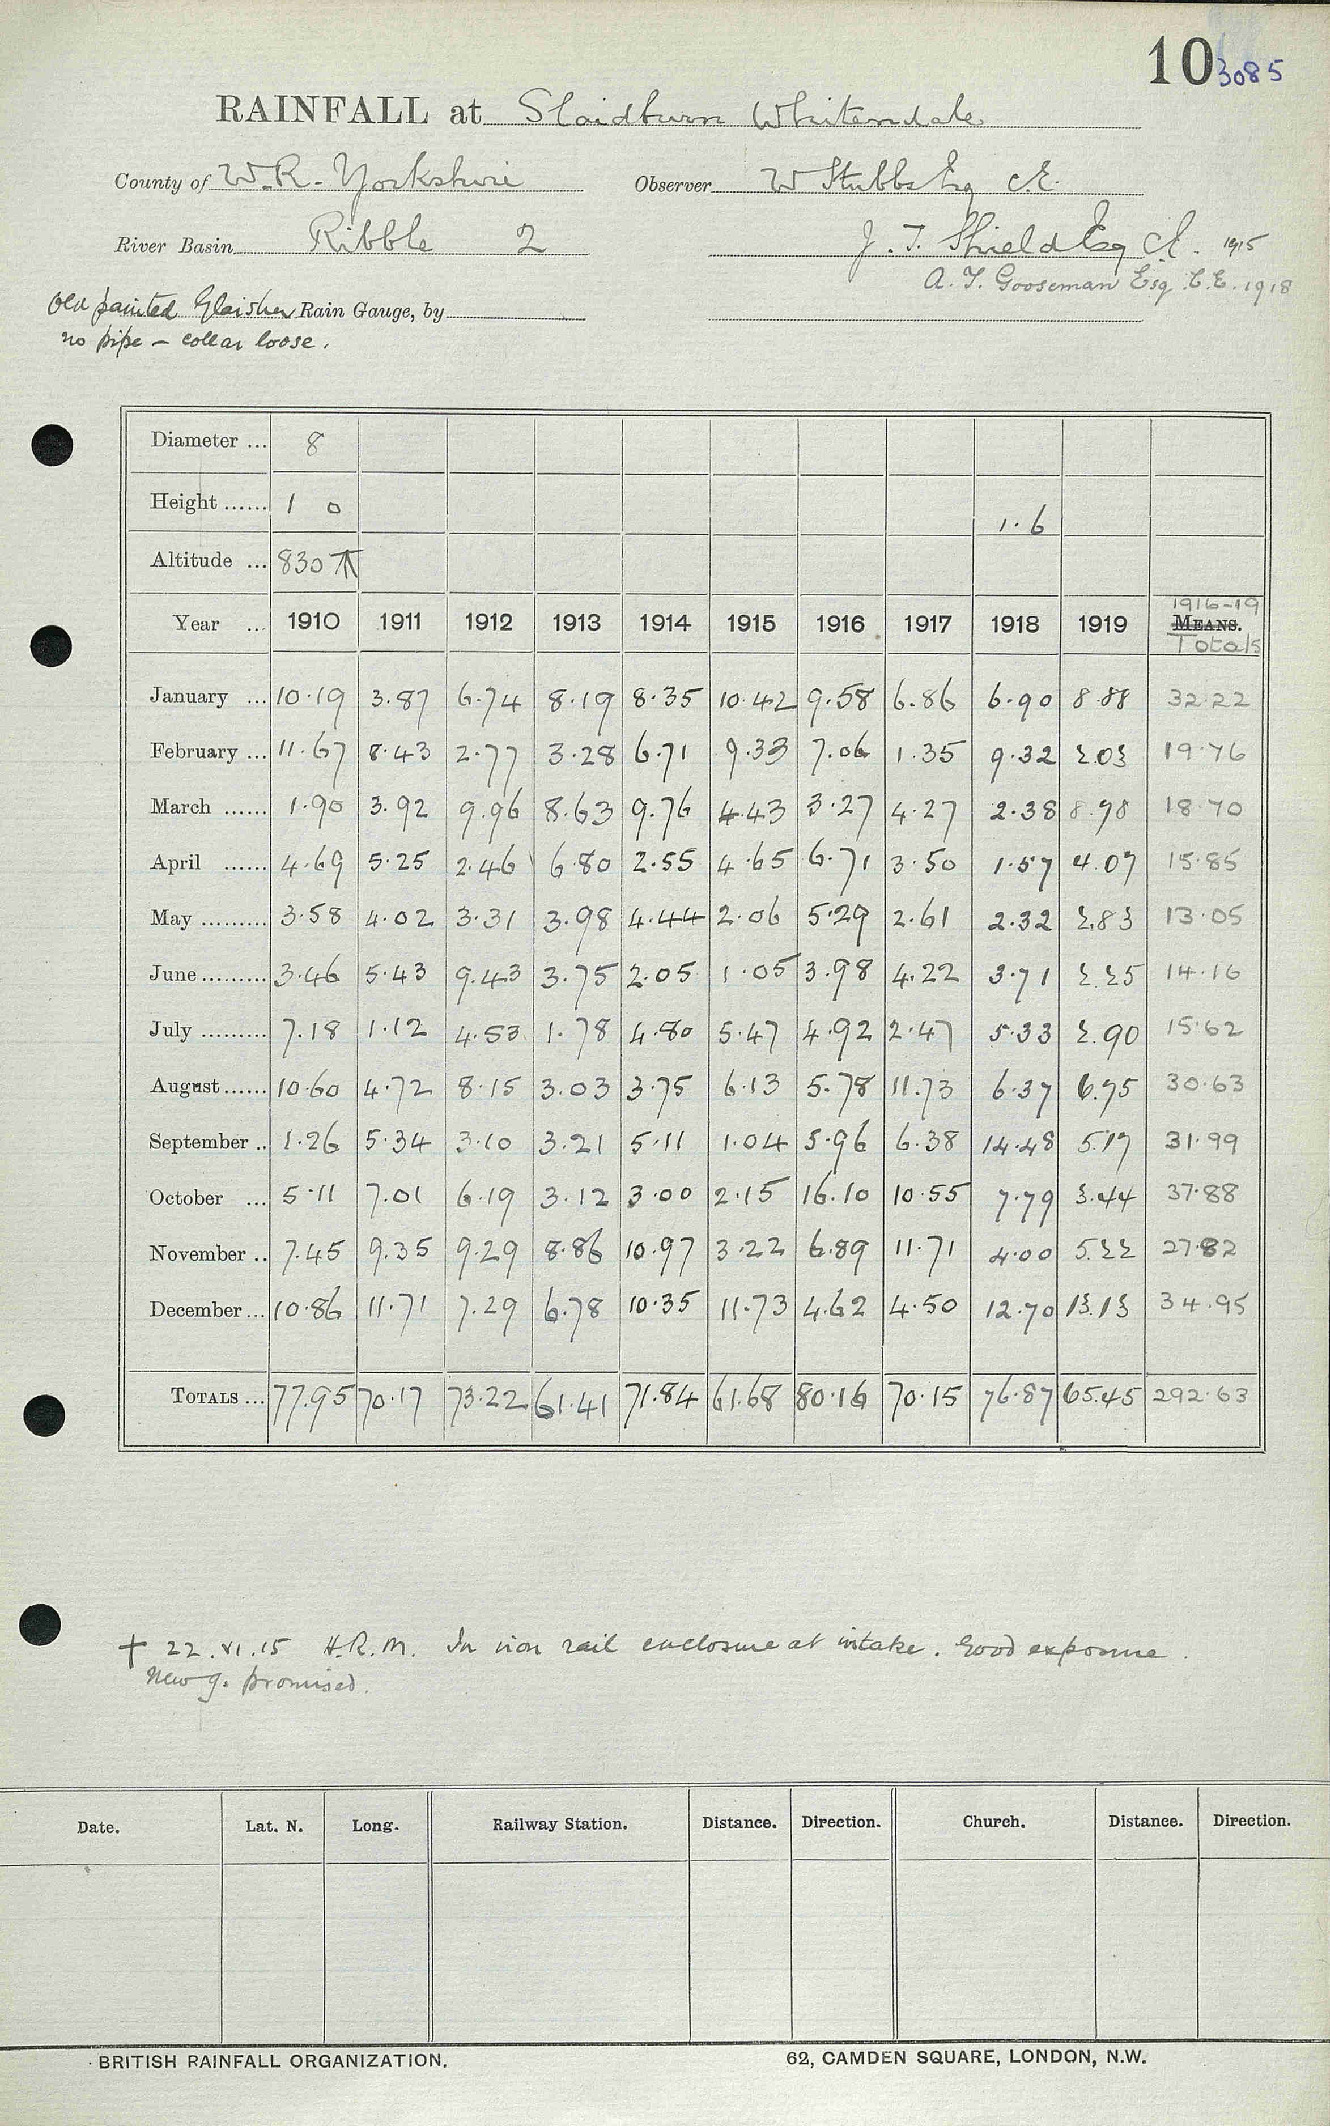 10 3085
RAINFALL at Slaidburn Whitendale
County of W.R. Yorkshire Observer W Stubbs Esq C.E.
River Basin Ribble 2 J. T. Shield Esq C.E. 1915
A. T. Gooseman Esq. C.E. 1918
Old painted Glaisher Rain Gauge, by
no pipe – collar loose.
Diameter ... 8
Height ...... 1 0 1.6
Altitude ... 830
1916-19
Year ... 1910 1911 1912 1913 1914 1915 1916 1917 1918 1919 MEANS.
Totals
January ... 10.19 3.87 6.74 8.19 8.35 10.42 9.58 6.86 6.90 8.88 32.22
February ... 11.67 8.43 2.77 3.28 6.71 9.33 7.06 1.35 9.32 2.03 19.76
March ...... 1.90 3.92 9.96 8.63 9.76 4.43 3.27 4.27 2.38 8.78 18.70
April ...... 4.69 5.25 2.46 6.80 2.55 4.65 6.71 3.50 1.57 4.07 15.85
May ......... 3.58 4.02 3.31 3.98 4.44 2.06 5.29 2.61 2.32 2.83 13.05
June ......... 3.46 5.43 9.43 3.75 2.05 1.05 3.98 4.22 3.71 2.25 14.16
July ......... 7.18 1.12 4.53 1.78 4.80 5.47 4.92 2.47 5.33 2.90 15.62
August ...... 10.60 4.72 8.15 3.03 3.75 6.13 5.78 11.73 6.37 6.75 30.63
September .. 1.26 5.34 3.10 3.21 5.11 1.04 5.96 6.38 14.48 5.17 31.99
October ... 5.11 7.01 6.19 3.12 3.00 2.15 16.10 10.55 7.79 3.44 37.88
November .. 7.45 9.35 9.29 8.86 10.97 3.22 6.89 11.71 4.00 5.22 27.82
December ... 10.86 11.71 7.29 6.78 10.35 11.73 4.62 4.50 12.70 13.13 34.95
TOTALS ... 77.95 70.17 73.22 61.41 71.84 61.68 80.16 70.15 76.87 65.45 292.63
+ 22.XI.15 H.R.M. In iron rail enclosure at intake. Good exposure.
New g. promised.
Date. Lat. N. Long. Railway Station. Distance. Direction. Church. Distance. Direction.
BRITISH RAINFALL ORGANIZATION. 62, CAMDEN SQUARE, LONDON, N.W.